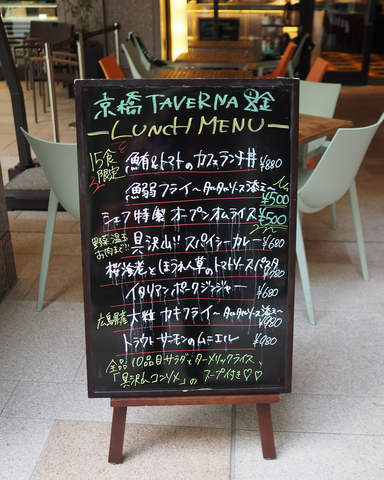 京橋 TAVERNA
LUNCH MENU
15食限定 鮪&トマトのカフェランチ丼 ¥880
フライ〜タルタルソース添え〜 ¥500
シェフ特製 オープンオムライス ¥500
具沢山!! スパイシーカレー ¥680
桜海老とほうれん草のトマトソースパスタ ¥780
イタリアンポークジンジャー ¥680
広島県産 大粒 カキフライ〜タルタルソース添え〜 ¥980
トラウトサーモンのムニエル ¥980
全品 10品目サラダとターメリックライス、
「具沢山コンソメ」のスープ付き♡♡